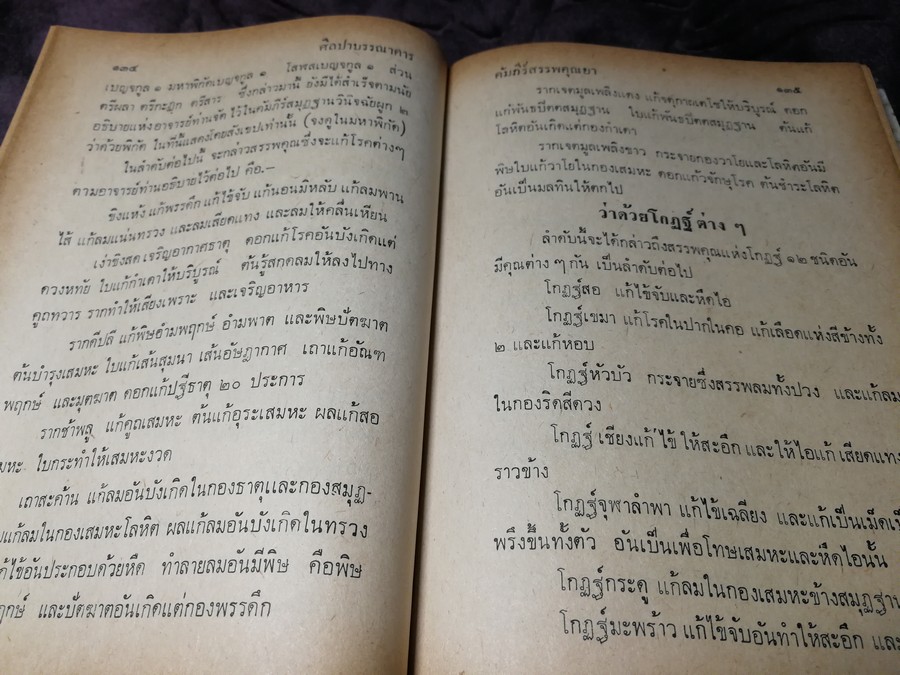 ศิลปาบรรณาคาร
๑๓๔
เบญจกูล ๑ มหาพิกัดเบญจกูล ๑ โสฬสเบญจกูล ๑ ส่วน
ตรีผลา ตรีกะฏุก ตรีสาร ซึ่งกล่าวมานี้ ยังมิได้สำเร็จตามนัย
อธิบายแห่งอาจารย์ท่านจัด ไว้ในคัมภีร์สมุฏฐานวินิจฉัยผูก ๒
ว่าด้วยพิกัด ในที่นี้แสดงโดยสังเขปเท่านั้น (จงดูในมหาพิกัด)
ในลำดับต่อไปนี้ จะกล่าวสรรพคุณซึ่งจะแก้โรคต่างๆ
ตามอาจารย์ท่านอธิบายไว้ต่อไป คือ.—
ขิงแห้ง แก้พรรดึก แก้ไข้จับ แก้นอนมิหลับ แก้ลมพาน
ไส้ แก้ลมแน่นทรวง และลมเสียดแทง และลมให้คลื่นเหียน
เง่าขิงสด เจริญอากาศธาตุ ดอกแก้โรคอันบังเกิดแต่
ดวงหทัย ใบแก้กำเดาให้บริบูรณ์ ต้นรู้สกดลมให้ลงไปทาง
คูถทวาร รากทำให้เสียงเพราะ และเจริญอาหาร
รากดีปลี แก้พิษอำมพฤกษ์ อำมพาต และพิษปัตฆาต
ต้นบำรุงเสมหะ ใบแก้เส้นสุมนา เส้นอัษฎากาศ เถาแก้อัณฑ
พฤกษ์ และมุตฆาต ดอกแก้ปฐวีธาตุ ๒๐ ประการ
รากช้าพลู แก้คูถเสมหะ ต้นแก้อุระเสมหะ ผลแก้สอ
มหะ ใบกระทำให้เสมหะงวด
เถาสะค้าน แก้ลมอันบังเกิดในกองธาตุและกองสมุฏ-
บแก้ลมในกองเสมหะโลหิต ผลแก้ลมอันบังเกิดในทรวง
ก้ไข้อันประกอบด้วยหืด ทำลายลมอันมีพิษ คือพิษ
ฤกษ์ และปัตฆาตอันเกิดแต่กองพรรดึก
คัมภีร์สรรพคุณยา
๑๓๕
รากเจตมูลเพลิงแดง แก้จตุกาลเตโชให้บริบูรณ์ ดอก
แก้พันธปิตตสมุฏฐาน ใบแก้พันธปิตตสมุฏฐาน ต้นแก้
โลหิตอันเกิดแต่กองกำเดา
รากเจตมูลเพลิงขาว กระจายกองวาโยและโลหิตอันมี
พิษใบแก้วาโยในกองเสมหะ ดอกแก้วจักษุโรค ต้นชำระโลหิต
อันเป็นมลทินให้ตกไป
ว่าด้วยโกฏฐ์ ต่าง ๆ
ลำดับนี้จะได้กล่าวถึงสรรพคุณแห่งโกฏฐ์ ๑๒ ชนิดอัน
มีคุณต่าง ๆ กัน เป็นลำดับต่อไป
โกฏฐ์สอ แก้ไข้จับและหืดไอ
โกฏฐ์เขมา แก้โรคในปากในคอ แก้เลือดแห่งสีข้างทั้ง
๒ และแก้หอบ
โกฏฐ์หัวบัว กระจายซึ่งสรรพลมทั้งปวง และแก้ลม
ในกองริดสีดวง
โกฏฐ์ เชียงแก้ ไข้ ให้สะอึก และให้ไอแก้ เสียดแทง
ราวข้าง
โกฏฐ์จุฬาลำพา แก้ไข้เฉลียง และแก้เป็นเม็ดเป็
พรึงขึ้นทั้งตัว อันเป็นเพื่อโทษเสมหะและหืดไอนั้น
โกฏฐ์กระดู แก้ลมในกองเสมหะข้างสมุฏฐาน
โกฏฐ์มะพร้าว แก้ไข้จับอันทำให้สะอึก และ